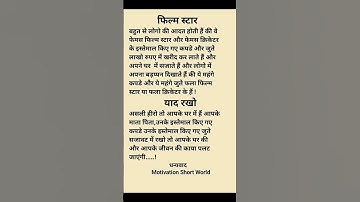 फिल्म स्टार
बहुत से लोगो की आदत होती हैं की वे
फेमस फिल्म स्टार और फेमस क्रिकेटर
के इस्तेमाल किए गए कपडे और जुते
लाखो रुपए में खरीद कर लाते हैं और
अपने घर में सजाते हैं और लोगों में
अपना बड़प्पन दिखाते हैं की ये महंगे
कपडे और ये महंगे जुते फला फिल्म
स्टार या फला क्रिकेटर के हैं !
याद रखो
असली हीरो तो आपके घर में हैं आपके
माता पिता,उनके इस्तेमाल किए गए
कपडे उनके इस्तेमाल किए गए जुते
सजावट में रखो तो आपके घर की
और आपके जीवन की काया पलट
जाएंगी.....!
धन्यवाद
Motivation Short World